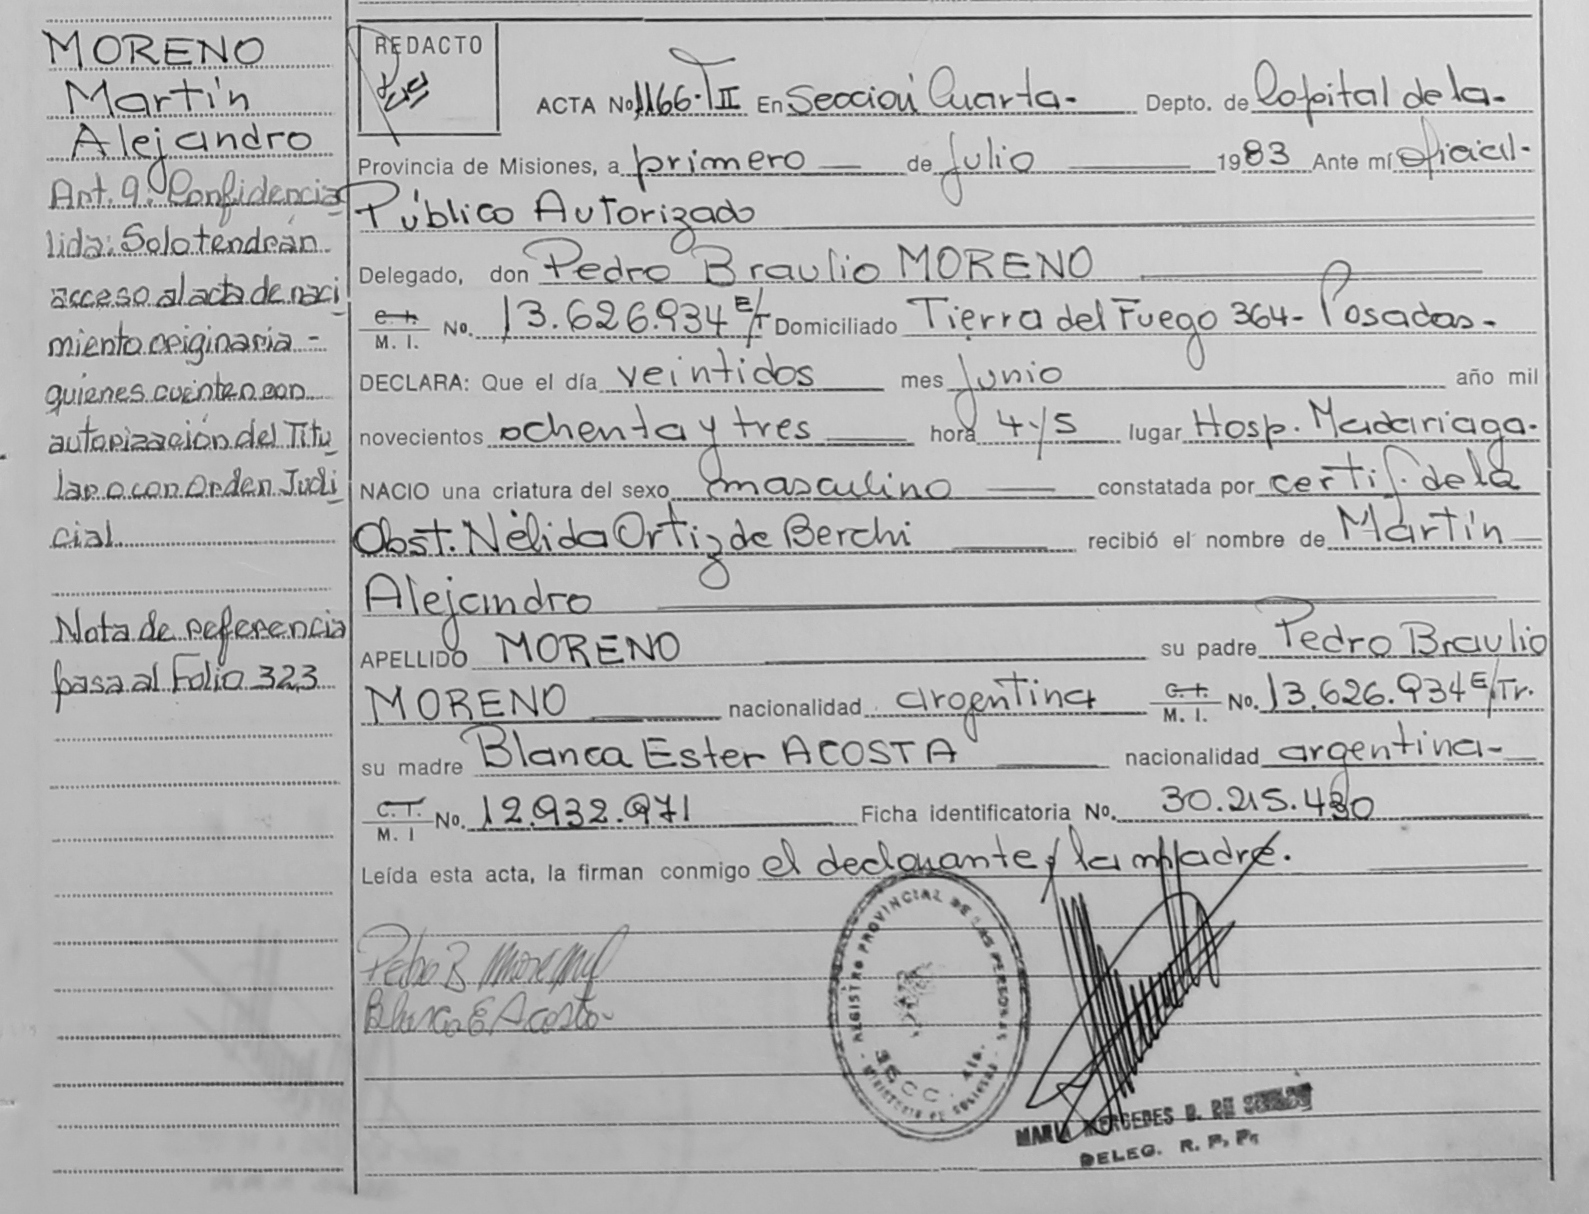 MORENO
Martín
Alejandro
Art. 9: Confidencia
lida: Solo tendrán
acceso al acta de naci
miento originaria -
quienes cuenten con
autorización del Titu
lar o con Orden Judi
cial.
Nota de referencia
pasa al Folio 323
REDACTO
ACTA No. 1166-TII En Sección Cuarta- Depto. de Capital de la-
Provincia de Misiones, a primero de Julio 1983 Ante mí Oficial-
Público Autorizado
Delegado, don Pedro Braulio MORENO
C. I. M. I. No. 13.626.934 E/T Domiciliado Tierra del Fuego 364- Posadas-
DECLARA: Que el día veintidos mes Junio año mil
novecientos ochenta y tres hora 4y5 lugar Hosp. Madariaga.
NACIO una criatura del sexo masculino constatada por certif. de la
Obst. Nélida Ortiz de Berchi recibió el nombre de Martín
Alejandro
APELLIDO MORENO su padre Pedro Braulio
MORENO nacionalidad argentina C. I. M. I. No. 13.626.934 E/Tr.
su madre Blanca Ester ACOSTA nacionalidad argentina-
C. I. M. I No. 12.932.971 Ficha identificatoria No. 30.215.430
Leída esta acta, la firman conmigo el declarante y la madre.
Pedro B Moreno
Blanca E Acosta
REGISTRO PROVINCIAL DE LAS PERSONAS
SECC. 4ta.
MARIA MERCEDES B. DE
DELEG. R. P. P.